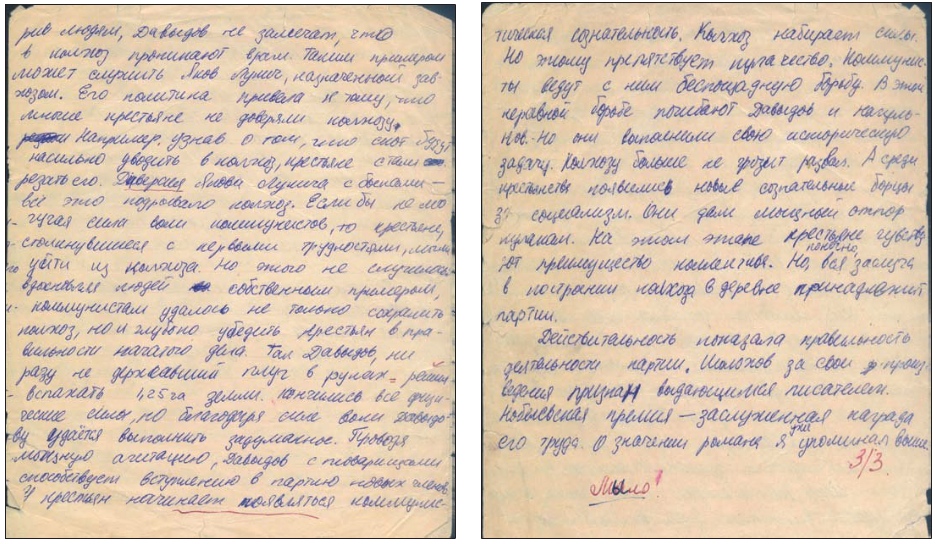 рив людям, Давыдов не замечает, что
в колхоз проникают враги. Таким примером
может служить Яков Лукич, назначенный зав-
хозом. Его политика привела к тому, что
многие крестьяне не доверяли колхозу.
Например. узнав о том, что скот будут
насильно уводить в колхоз, крестьяне стали
резать его. Диверсия Якова Лукича с быками —
всё это подрывало колхоз. Если бы не мо
гучая сила воли коммунистов, то крестьяне,
столкнувшиеся с первыми трудностями, могли
уйти из колхоза. Но этого не случилось
вдохновляя людей собственным примером,
коммунистам удалось не только сохранить
колхоз, но и глубоко убедить крестьян в пра-
вильности начатого дела. Так Давыдов, ни
разу не державший плуг в руках, решил
вспахать 1,25 га земли. Кончились все физи-
ческие силы, но благодаря силе воли Давыдо-
ву удаётся выполнить задуманное. Проводя
мощную агитацию, Давыдов с товарищами
способствует вступлению в партию новых членов.
У крестьян начинает появляться коммунис-
тическая сознательность. Колхоз набирает силы.
Но этому препятствует кулачество. Коммунис-
ты ведут с ним беспощадную борьбу. В этой
неравной борьбе погибают Давыдов и Нагуль-
нов. Но они выполнили свою историческую
задачу. Колхозу больше не грозит развал. А среди
крестьянства появились новые сознательные борцы
за социализм. Они дали мощный отпор
кулакам. На этом этапе крестьяне чувству
ют преимущество коллектива. Но, конечно, вся заслуга
в построении колхоза в деревне принадлежит
партии.
Действительность показала правильность
деятельности партии. Шолохов за свои произ
ведения признан выдающимся писателем.
Нобелевская премия — заслуженная награда
его труда. О значении романа я уже упоминал выше.
3/3.
Мыло!